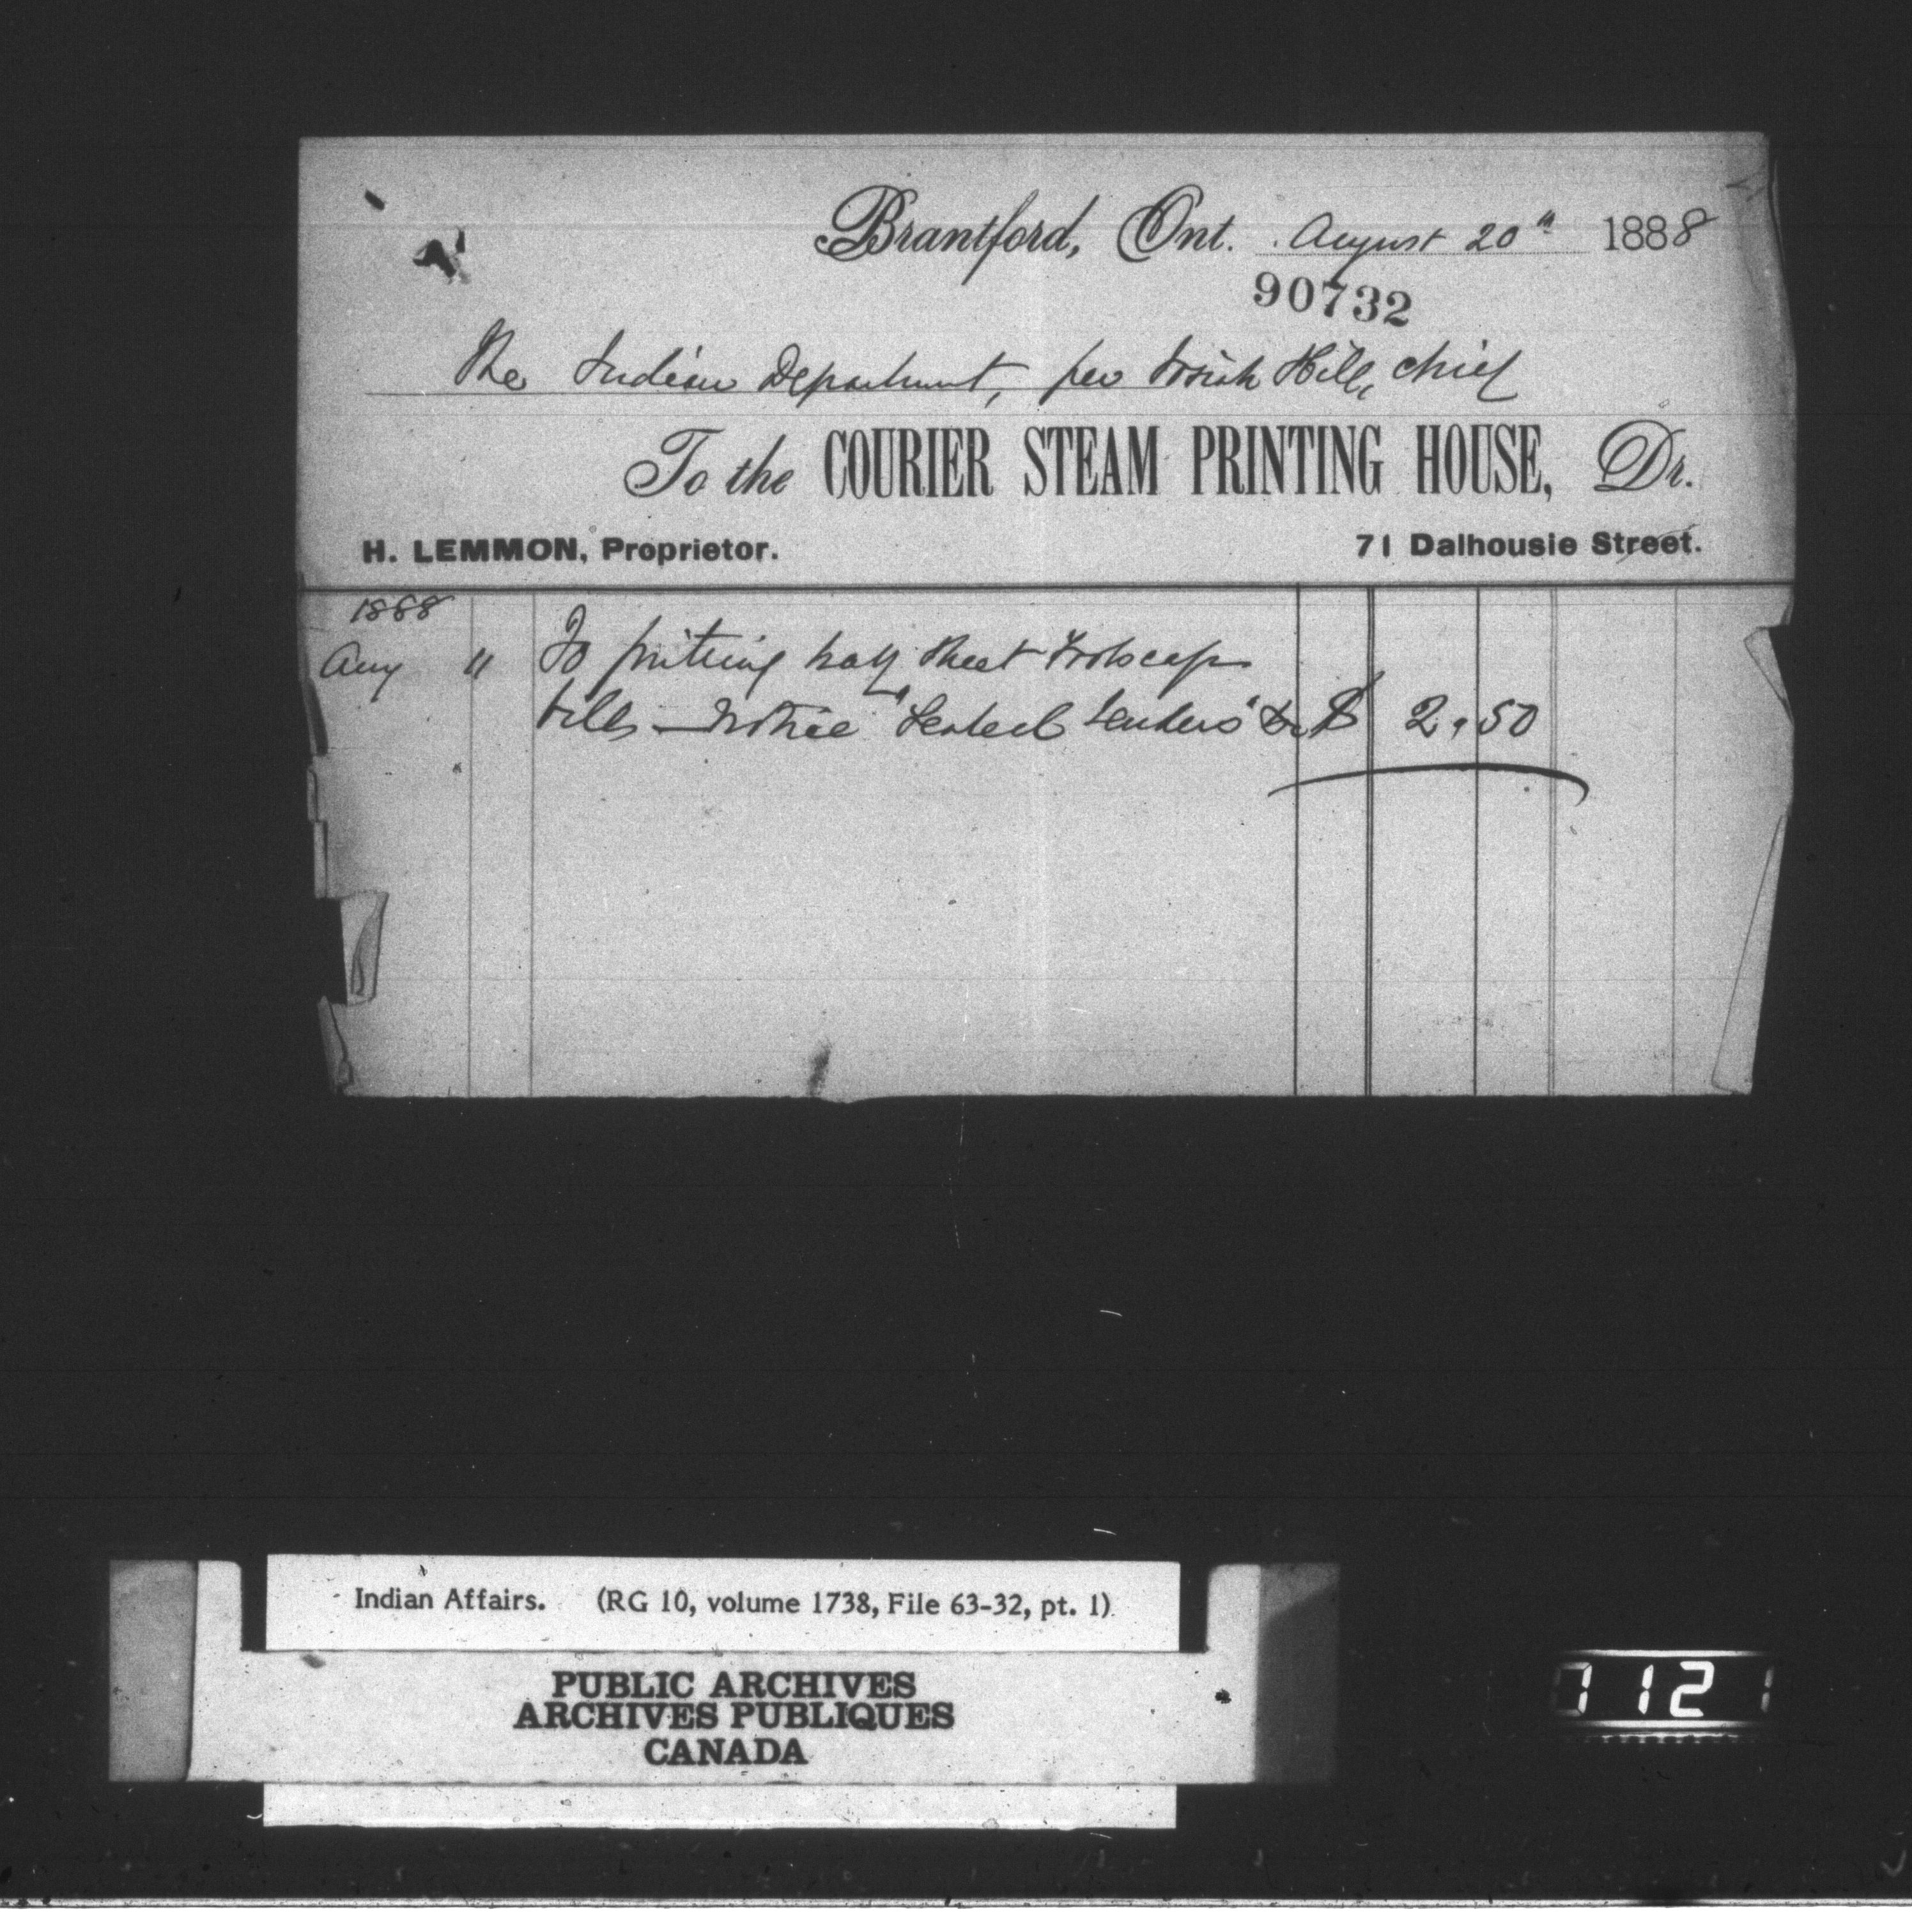 Brantford, Ont. August 20th 1888
90732
The Indian Department, per Josiah Hill, Chief
To the COURIER STEAM PRINTING HOUSE, Dr.
H. LEMMON, Proprietor. 71 Dalhousie Street.
1888
Aug " To printing half sheet Foolscap
bills — Notice "Sealed Tenders" &c $ 2.50
Indian Affairs. (RG 10, volume 1738, File 63-32, pt. 1)
PUBLIC ARCHIVES
ARCHIVES PUBLIQUES
CANADA